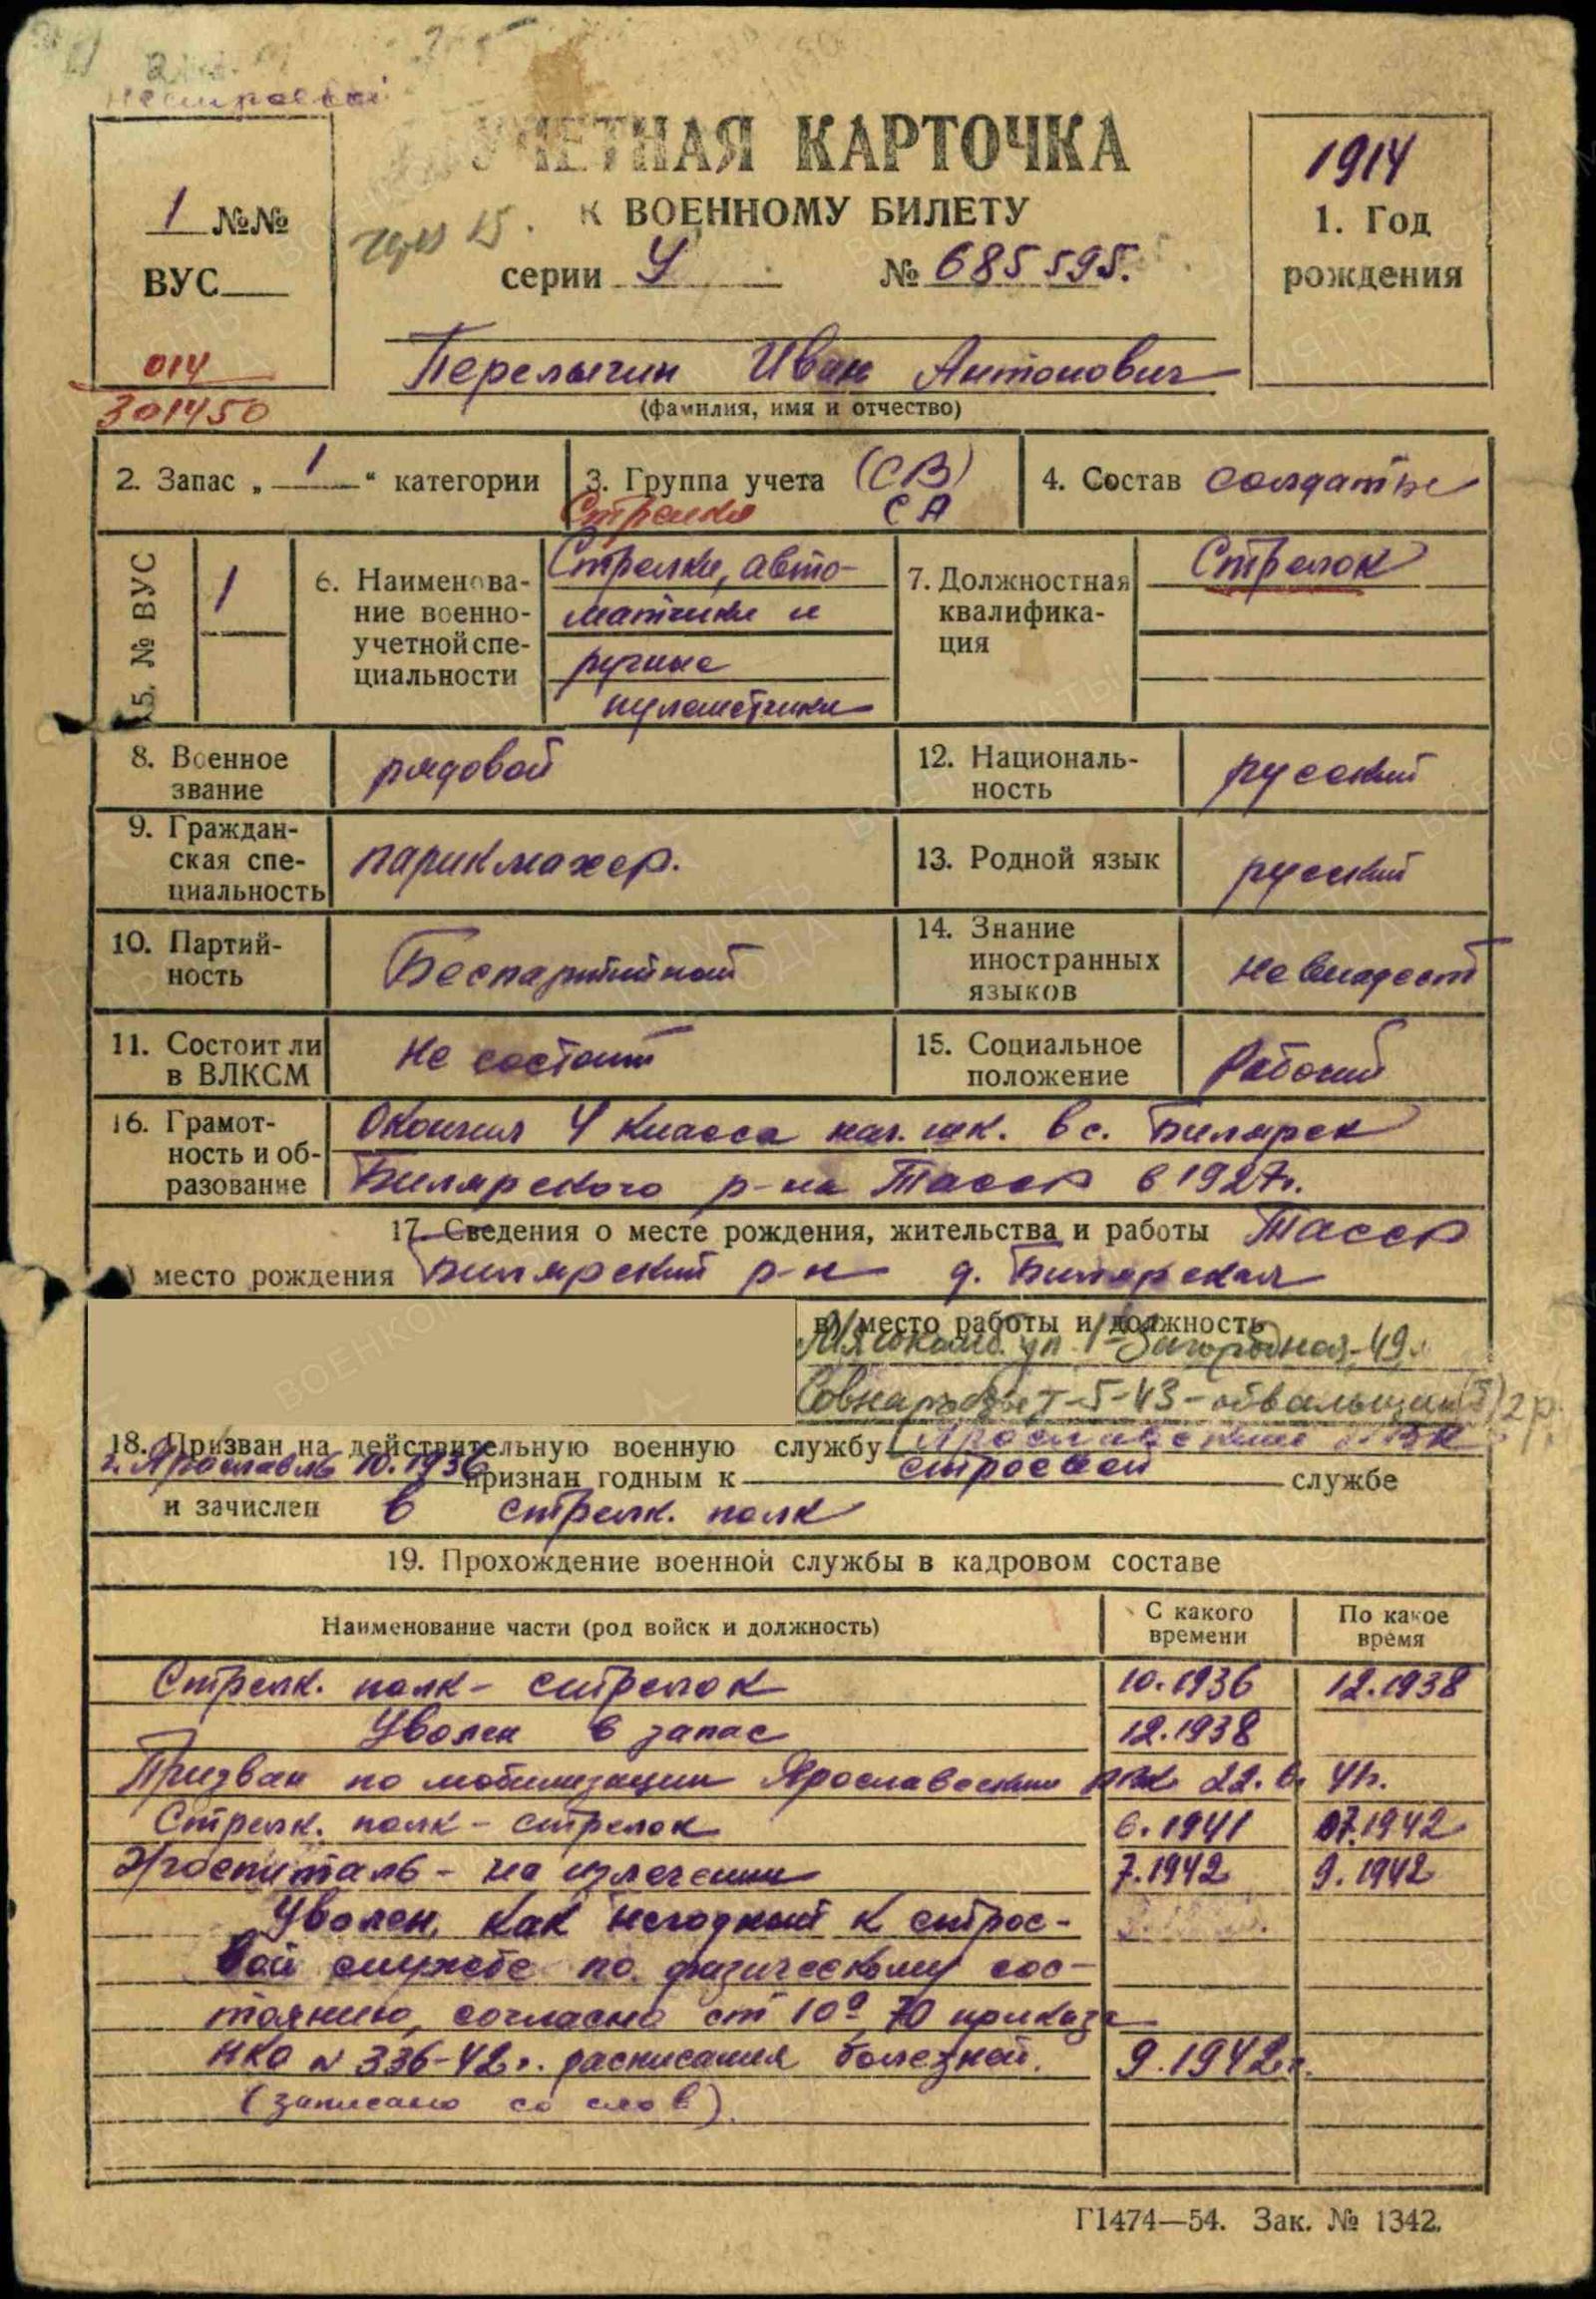 нестроевой
УЧЕТНАЯ КАРТОЧКА
К ВОЕННОМУ БИЛЕТУ
серии У № 685595.
1 №№
ВУС
014
301450
1914
1. Год
рождения
Перелыгин Иван Антонович
(фамилия, имя и отчество)
2. Запас „ 1 “ категории
3. Группа учета (СВ)
Стрелки СА
4. Состав солдаты
5. № ВУС
1
6. Наименова-
ние военно-
учетной спе-
циальности
Стрелки, авто-
матчики и
ручные
пулеметчики
7. Должностная
квалифика-
ция
Стрелок
8. Военное
звание
рядовой
12. Националь-
ность
русский
9. Граждан-
ская спе-
циальность
парикмахер.
13. Родной язык
русский
10. Партий-
ность
Беспартийный
14. Знание
иностранных
языков
не владеет
11. Состоит ли
в ВЛКСМ
Не состоит
15. Социальное
положение
Рабочий
16. Грамот-
ность и об-
разование
Окончил 4 класса нач. шк. в с. Билярск
Билярского р-на Тасср в 1927г.
17. Сведения о месте рождения, жительства и работы Тасср
место рождения Билярский р-н д. Билярская
в) место работы и должность
ул. 1 Загородная-49
5-43-обвальщик
18. Призван на действительную военную службу Ярославским РВК
г. Ярославль 10.1936 признан годным к строевой службе
и зачислен в стрелк. полк
19. Прохождение военной службы в кадровом составе
Наименование части (род войск и должность)
С какого
времени
По какое
время
Стрелк. полк - стрелок 10.1936 12.1938
Уволен в запас 12.1938
Призван по мобилизации Ярославским рвк 22.6. 41г.
Стрелк. полк - стрелок 6.1941 07.1942
Госпиталь - на излечении 7.1942 9.1942
Уволен, как негодный к строе-
вой службе по физическому сос-
тоянию, согласно ст 10а, 70 приказа
НКО № 336-42г. расписания болезней. 9.1942г.
(записано со слов).
Г1474—54. Зак. № 1342.